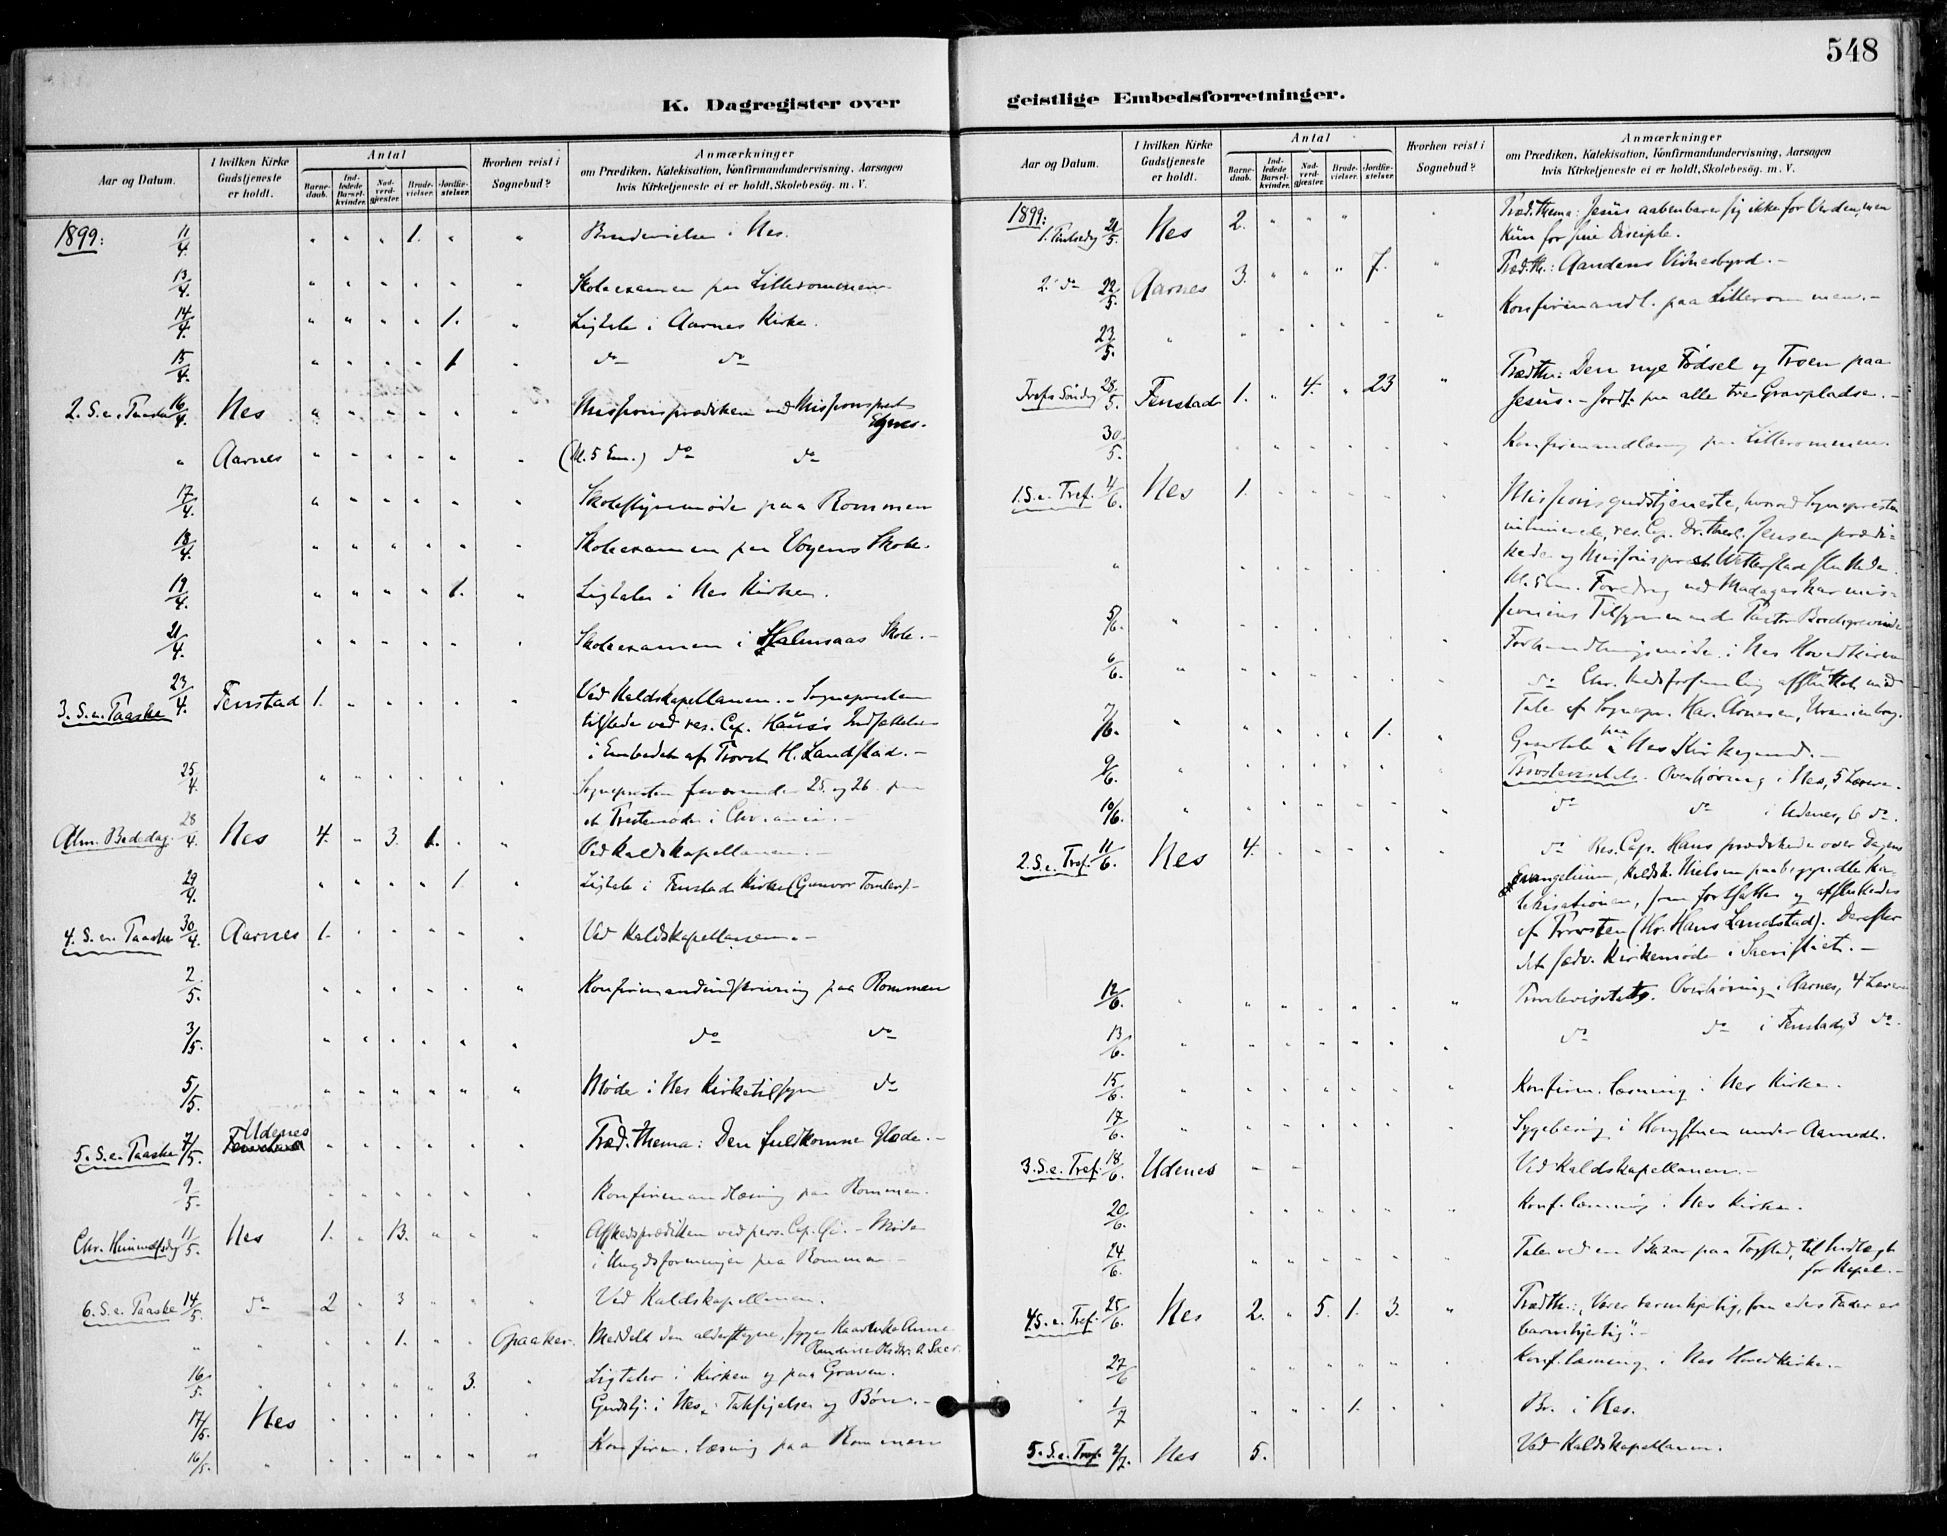 548
K. Dagregister over
Aar og Datum.
I hvilken Kirke Gudstjeneste er holdt.
Antal
Barnedaab.
Indledede Barselkvinder.
Nadverdgjester.
Brudevielser.
Jordfæstelser.
Hvorhen reist i Sognebud?
Anmærkninger
om Prædiken, Katekisation, Konfirmandundervisning, Aarsagen
hvis Kirketjeneste ei er holdt, Skolebesøg. m. V.
1899: 11/4 1. Brudevielse i Nes.
13/4 Skoleexamen paa Lillerommen
14/4 1. Ligtale i Aarnes Kirke.
15/4 1 do do
2. S. e. Paaske 16/4 Nes Missionsprædiken ved Missionsprest
Aarnes (Kl. 5 Em.) do do
17/4 Skolestyremøde paa Rommen
18/4 Skoleexamen paa Skole.
19/4 1. Ligtale i Nes Kirke.
21/4 Skoleexamen i Skole.
3. S. e. Paaske 23/4 Fenstad 1. Ved Kaldskapellanen. Sognepresten
tilstede ved res. Cap. Indsættelse
i Embedet af Provst H. Landstad.
25/4 Sognepresten fraværende 25. og 26. paa
et Prestemøde i Chr.ania.
Alm. Bededag 28/4 Nes 4. 3. 1. Ved Kaldskapellanen.
29/4 1. Ligtale i Fenstad Kirke (Gunvor )
4. S. e. Paaske 30/4 Aarnes 1. Ved Kaldskapellanen.
2/5 Konfirmandindskrivning paa Rommen
3/5. do do
5/5. Møde i Nes Kirketilsyn do
5. S. e. Paaske 7/5. Udenes Præd. thema: Den fuldkomne Glæde.
9/5 Konfirmandlæsning paa Rommen.
Chr. Himmelfsdag 11/5. Nes 1. 13. Afskedsprædiken ved pers. Cap. Møde
i Ungdsforeningen paa Rommen
6. S. e. Paaske 14/5. do 2 3 Ved Kaldskapellanen.
1. Opaaker. Meddelt den alderstegne, syge Anne
16/5. 3. Ligtaler i Kirken og paa Graven.
17/5. Nes Gudstj. i Nes, Taksigelse og Bøn.
16/5. Konfirm. læsning paa Rommen
geistlige Embedsforretninger.
Aar og Datum.
I hvilken Kirke Gudstjeneste er holdt.
Antal
Barnedaab.
Indledede Barselkvinder.
Nadverdgjester.
Brudevielser.
Jordfæstelser.
Hvorhen reist i Sognebud?
Anmærkninger
om Prædiken, Katekisation, Konfirmandundervisning, Aarsagen
hvis Kirketjeneste ei er holdt, Skolebesøg. m. V.
1899: 1. Pintsedag 21/5 Nes 2. Præd. thema: Jesus aabenbarer sig ikke for Verden, men
kun for sine Disciple.
2. do 22/5. Aarnes 3. 7. Præd. th.: Aandens Vidnesbyrd.
23/5. Konfirmandl. paa Lillerommen.
Trefs Søndag 28/5. Fenstad 1. 4. 23 Præd th.: Den nye Fødsel og Troen paa
Jesus. Jordf. paa alle tre Gravpladse.
30/5. Konfirmandlæsning paa Lillerommen.
1. S. e. Tref. 4/6. Nes 1. Missionsgudstjeneste, hvorved Sognepresten
res. Cap. Jensen prædi-
kede og Missionsprest
Kl. 5 Em. Foredrag ved Madagaskarmis-
sionens Tilsynsmand Pastor Borchgrevink
5/6. Forhandlingsmøde i Nes Hovedkirke
6/6. do afsluttet med
Tale af Sognepr. Har. Arnesen, Uranienborg.
7/6. 1. Gravtale paa Nes Kirkegaard.
9/6. Provstevisitats. Overhøring i Nes, 5
10/6. do do i Udenes, 6 do.
2. S. e. Tref. 11/6. Nes 4. do Res. Cap. prædikede over Dagens
Evangelium, Kaldsk. Nielsen paabegyndte Ka-
tekisationen, som fortsattes og afsluttedes
af Provsten (Hr. Hans Landstad). Derefter
det sædv. Kirkemøde i Sacristiet.
12/6. Provstevisitats. Overhøring i Aarnes, 4
13/6. do do i Fenstad, 3 do.
15/6. Konfirm. læsning i Nes Kirke.
17/6. Sygebesøg i under Aamodt.
3. S. e. Tref. 18/6. Udenes Ved Kaldskapellanen.
20/6. Konf. læsning i Nes Kirke.
24/6. Tale ved en Bazar paa til Indtægt
for Kapel.
4. S. e. Tref. 25/6. Nes 2. 5. 1. 3. Præd th.: „Vær barmhjertig, som eders Fader er
barmhjertig“.
27/6 Konf. læsning i Nes Hovedkirke.
1/7 1. Br. i Nes.
5. S. e. Tref. 2/7. Nes 5. Ved Kaldskapellanen.